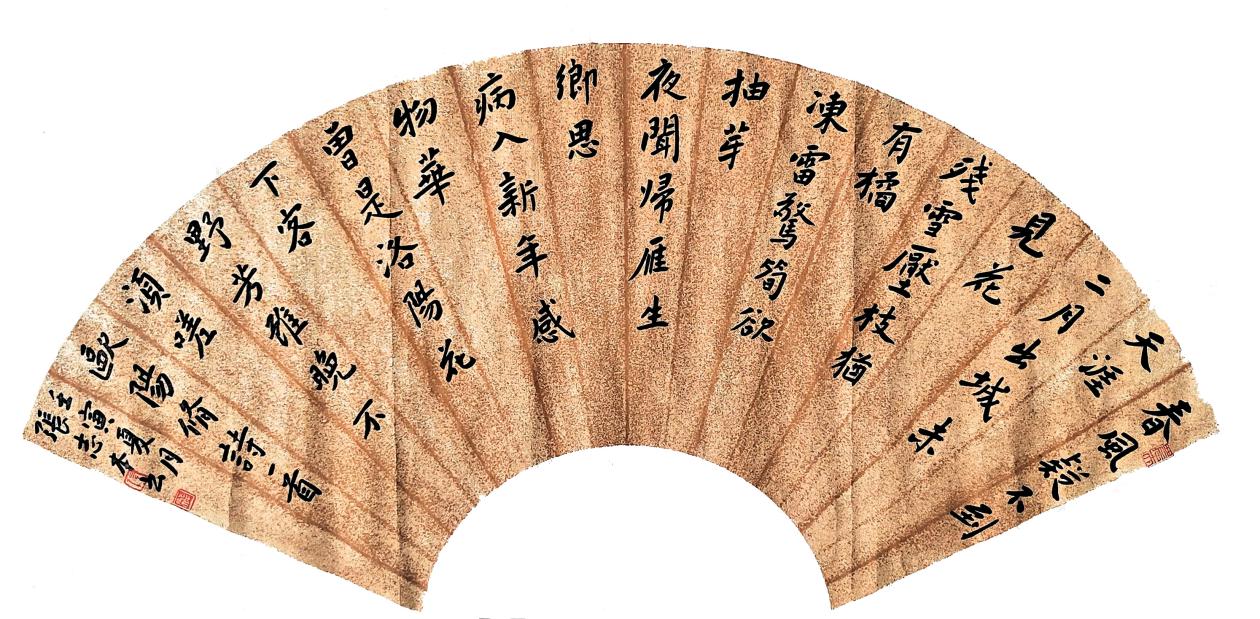 春風疑不到
天涯
二月出城未
見花
残雪壓枝猶
有橘
凍雷驚筍欲
抽芽
夜聞帰雁生
鄉思
病入新年感
物華
曾是洛陽花
下客
野芳雖晚不
湏嗟
歐陽脩詩一首
壬寅夏月
張志本